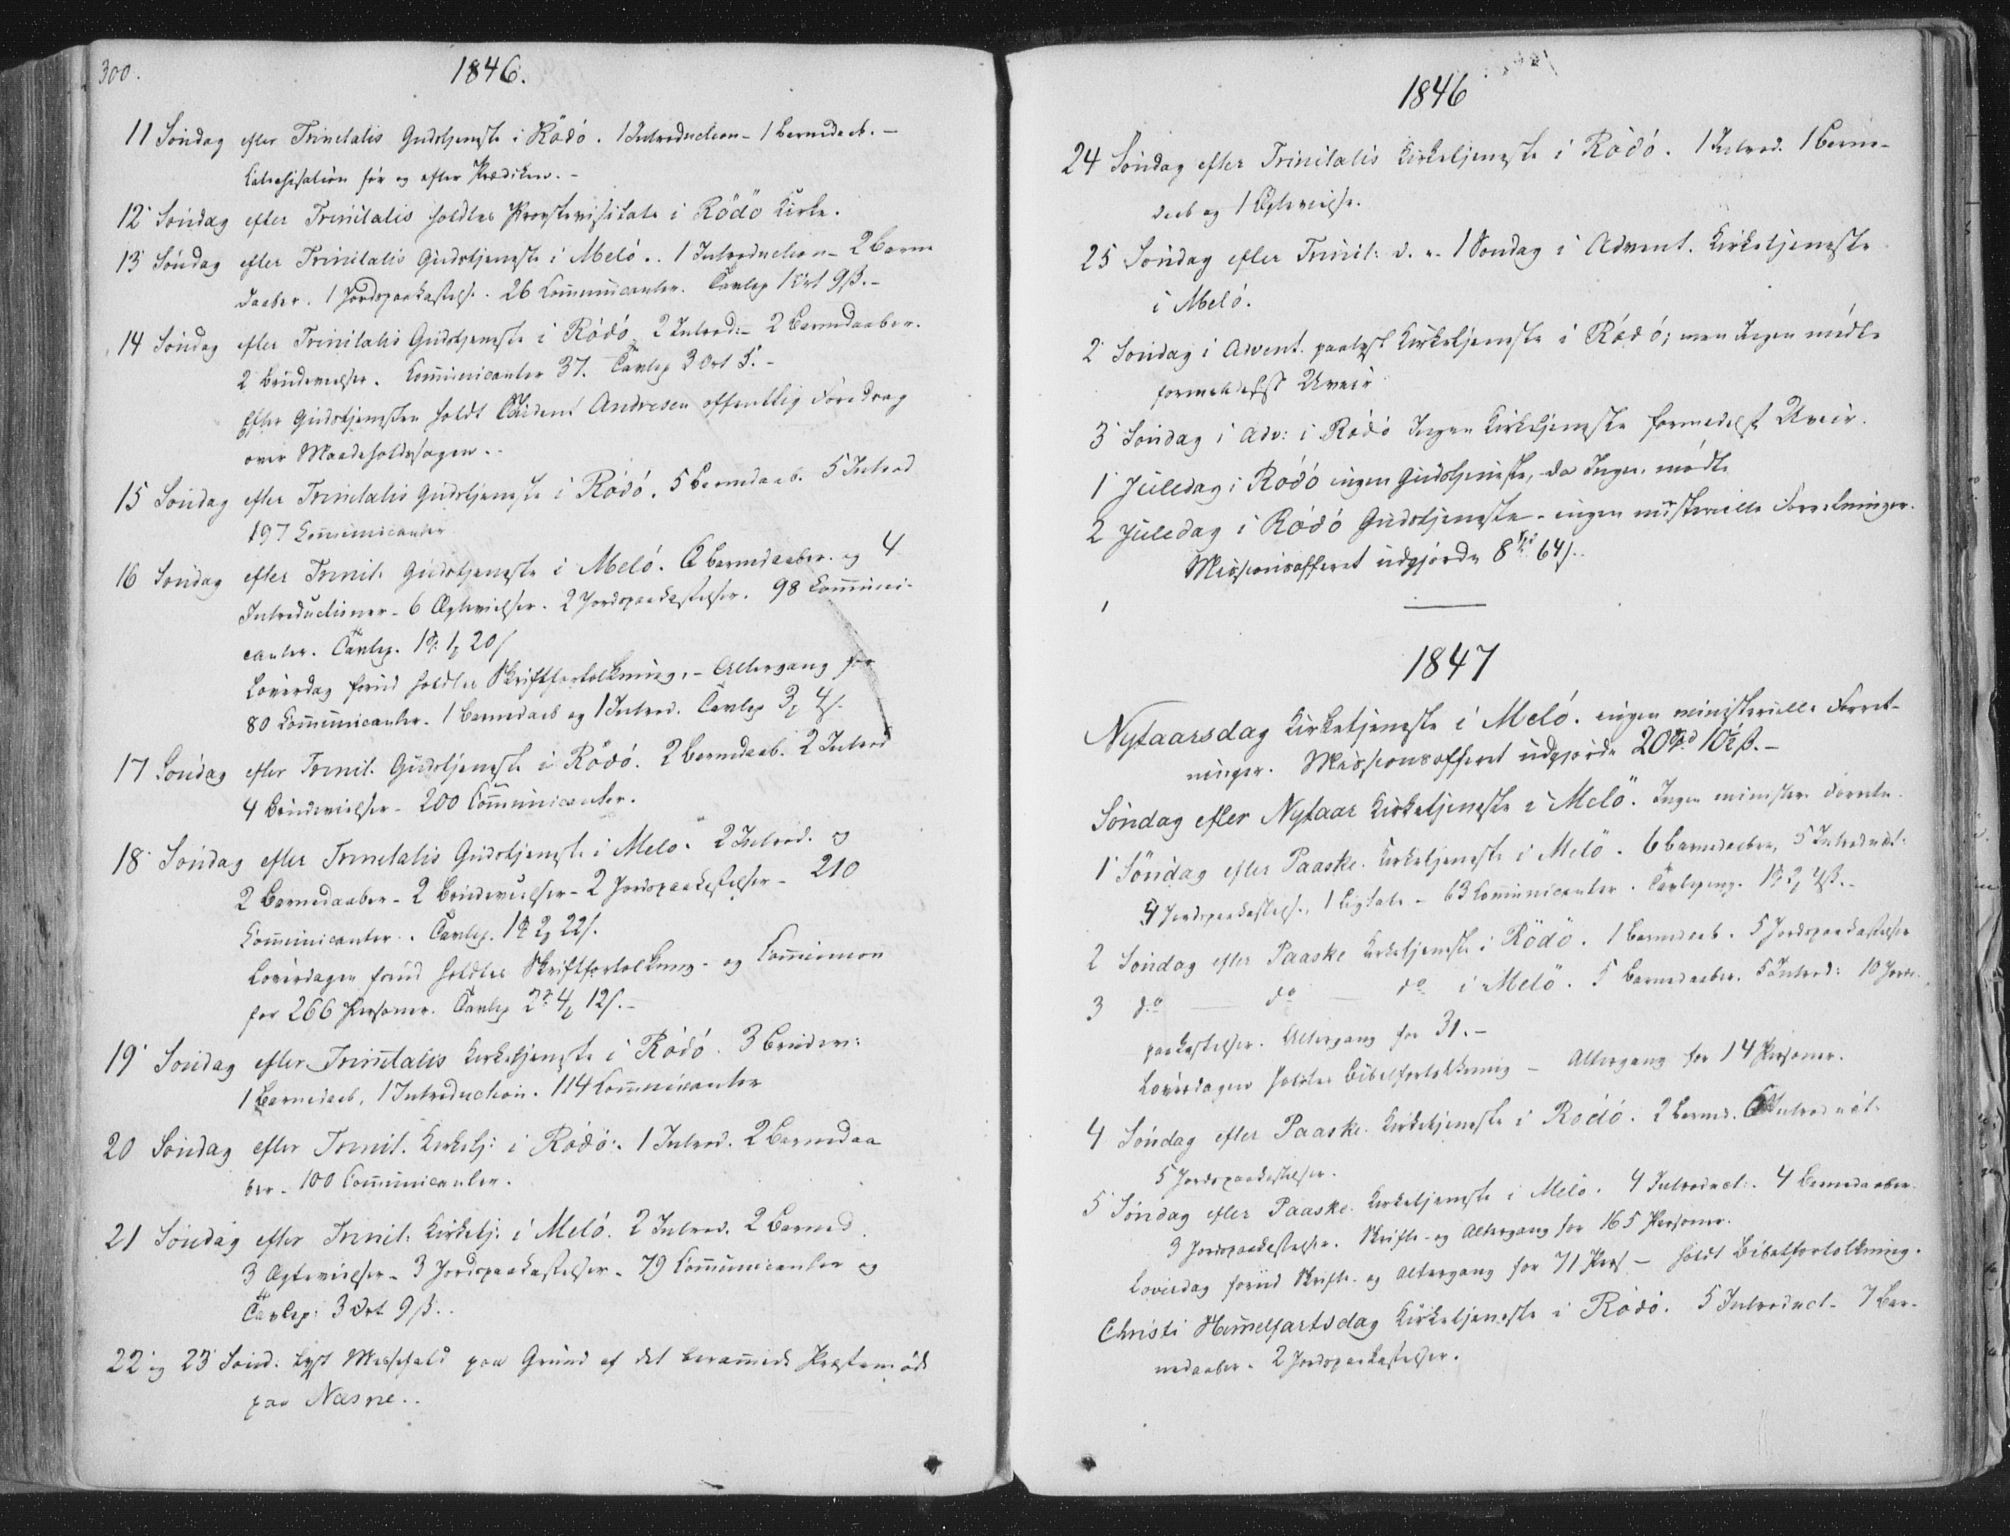 300.
1846.
11 Søndag efter Trinitatis Gudstjeneste i Rödö. 1 Introduction - 1 Barnedaab. -
Catechisation før og efter Prædiken. -
12 Søndag efter Trinitatis holdtes Provstevisitats i Rödö Kirke.
13 Søndag efter Trinitatis Gudstjeneste i Melö. 1 Introduction - 2 Barne
daaber. 1 Jordspaakastelse. 26 Communicanter. Tavlep 1 Ort 9 ß. -
14 Søndag efter Trinitatis Gudstjeneste i Rödö 2 Introd: - 2 Barnedaaber.
2 Brudevielser. Communicanter 37. Tavlep 3 Ort
Efter Gudstjenesten holdt Andresen offentlig Foredrag
over Maadeholdssagen. -
15 Søndag efter Trinitatis Gudstjeneste i Rödö. 5 Barnedaab. 5 Introd
197 Communicanter
16 Søndag efter Trinit. Gudstjeneste i Melö. 6 Barnedaaber og 4
Introductioner - 6 Ægtevielser. 2 Jordspaakastelser. 98 Communi-
canter. Tavlep. 20 ß
Løverdag forud holdtes Skriftfortolkning. - Altergang for
80 Communicanter. 1 Barnedaab og 1 Introd. Tavlep
17 Søndag efter Trinit. Gudstjeneste i Rödö. 2 Barnedaab. 2 Introd
4 Brudevielser - 200 Communicanter.
18 Søndag efter Trinitatis Gudstjeneste i Melö. 2 Introd. og
2 Barnedaaber - 2 Brudevielser - 2 Jordspaakastelser - 210
Communicanter. Tavlep. 22 ß.
Løverdagen forud holdtes Skriftfortolkning - og Communion
for 266 Personer. Tavlep 12 ß. -
19 Søndag efter Trinitatis Kirketjeneste i Rödö. 3 Brudev:
1 Barnedaab, 1 Introduction. 114 Communicanter
20 Søndag efter Trinit. Kirketj: i Rödö. 1 Introd. 2 Barnedaa
ber - 100 Communicanter.
21 Søndag efter Trinit. Kirketj: i Melö. 2 Introd. 2 Barned.
3 Ægtevielser - 3 Jordspaakastelser - 79 Communicanter og
Tavlep: 3 Ort 9 ß.
22 og 23 Sønd. lyst Messefald paa Grund af det berammede Præstemöde
paa Næsne.
1846
24 Søndag efter Trinitatis Kirketjeneste i Rödö. 1 Introd. 1 Barne-
daab og 1 Ægtevielse.
25 Søndag efter Trinit: d. e. 1 Søndag i Advent. Kirketjeneste
i Melö.
2 Søndag i Advent. paalyst Kirketjeneste i Rödö; men Ingen mödte
formedelst Uveir
3 Søndag i Adv: i Rödö Ingen Kirketjeneste formedelst Uveir.
1 Juledag i Rödö ingen Gudstjeneste, da Ingen mödte
2 Juledag i Rödö Gudstjeneste - ingen ministerielle Forretninger.
Missionsofferet udgjorde 8 64 ß.
1847
Nytaarsdag Kirketjeneste i Melö. ingen ministerielle Forret-
ninger. Missionsofferet udgjorde 20 10½ ß. -
Söndag efter Nytaar Kirketjeneste i Melö. Ingen minister. Forretn.
1 Söndag efter Paaske. Kirketjeneste i Melö. 6 Barnedaaber, 5 Introduct:
4 Jordspaakastelse, 1 Ligtale - 63 Communicanter. Tavlepeng.
2 Söndag efter Paaske Kirketjeneste i Rödö. 1 Barnedaab. 5 Jordspaakastelser
3 do do do i Melö. 5 Barnedaaber. 5 Introd: 10 Jords-
paakastelser. Altergang for 31. -
Løverdagen holdtes Bibelfortolkning - Altergang for 14 Personer.
4 Søndag efter Paaske. Kirketjeneste i Rödö. 2 Barned. Introduct.
5 Jordspaakastelser.
5 Søndag efter Paaske. Kirketjeneste i Melö. 4 Introduct. 4 Barnedaaber.
3 Jordspaakastelser. Skrifte- og Altergang for 165 Personer.
Løverdag forud Skrifte- og Altergang for 71 Pers - holdt Bibelfortolkning.
Christi Himmelfartsdag Kirketjeneste i Rödö. 5 Introduct - 7 Bar-
nedaaber - 2 Jordspaakastelser.